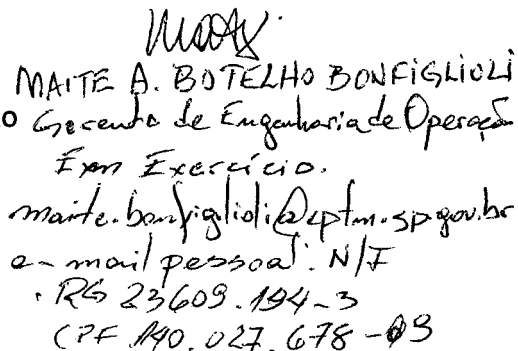 MAITE A. BOTELHO BONFIGLIOLI
o Gerente de Engenharia de Operação
Em Exercício.
maite.bonfiglioli@cptm.sp.gov.br
e-mail pessoal: N/I
RG 23609.194-3
CPF 140.027.678-09